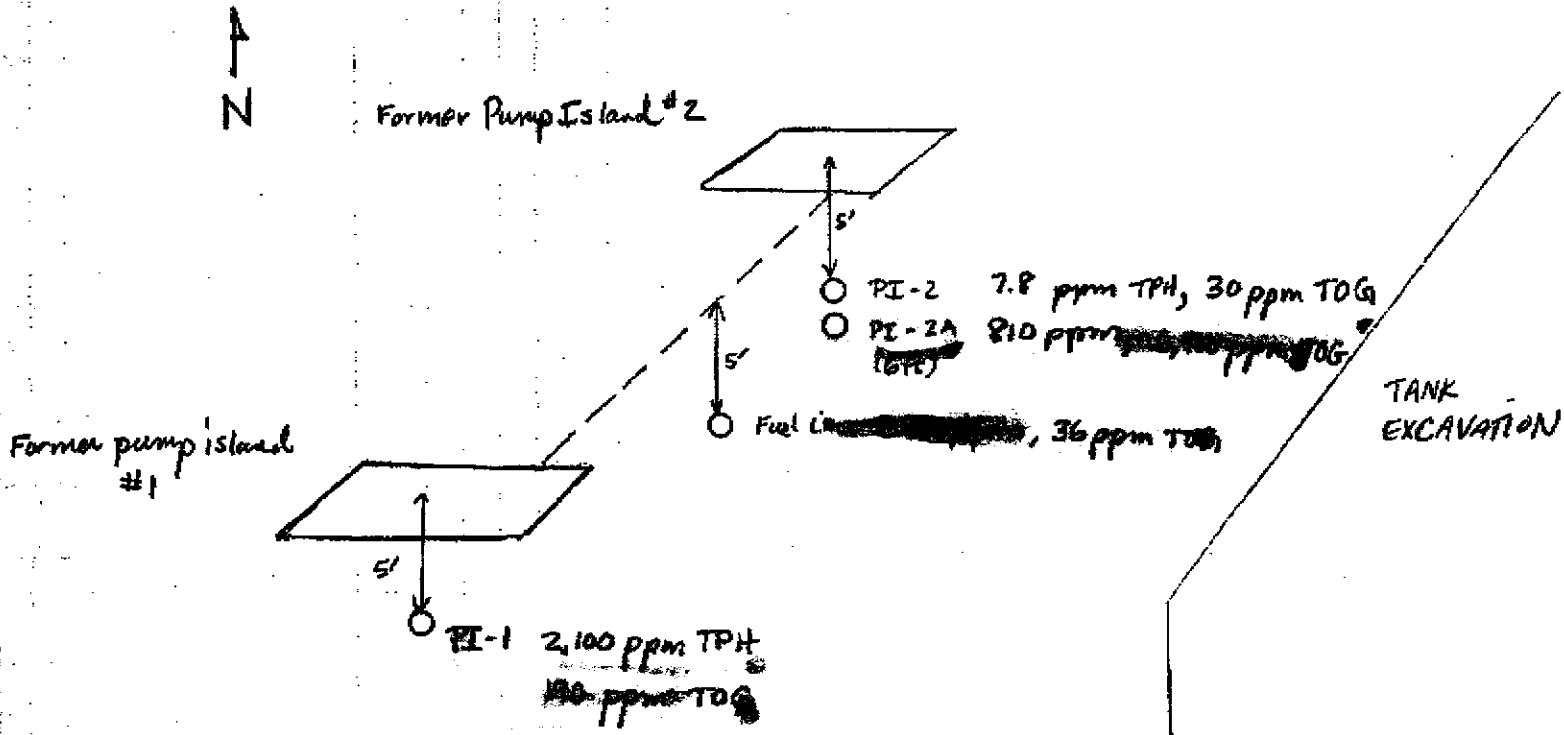 N
Former Pump Island #2
5'
PI-2 7.8 ppm TPH, 30 ppm TOG
PI-2A 810 ppm TOG
5'
Fuel , 36 ppm TOG
TANK
EXCAVATION
Former pump island
#1
5'
PI-1 2,100 ppm TPH
ppm TOG